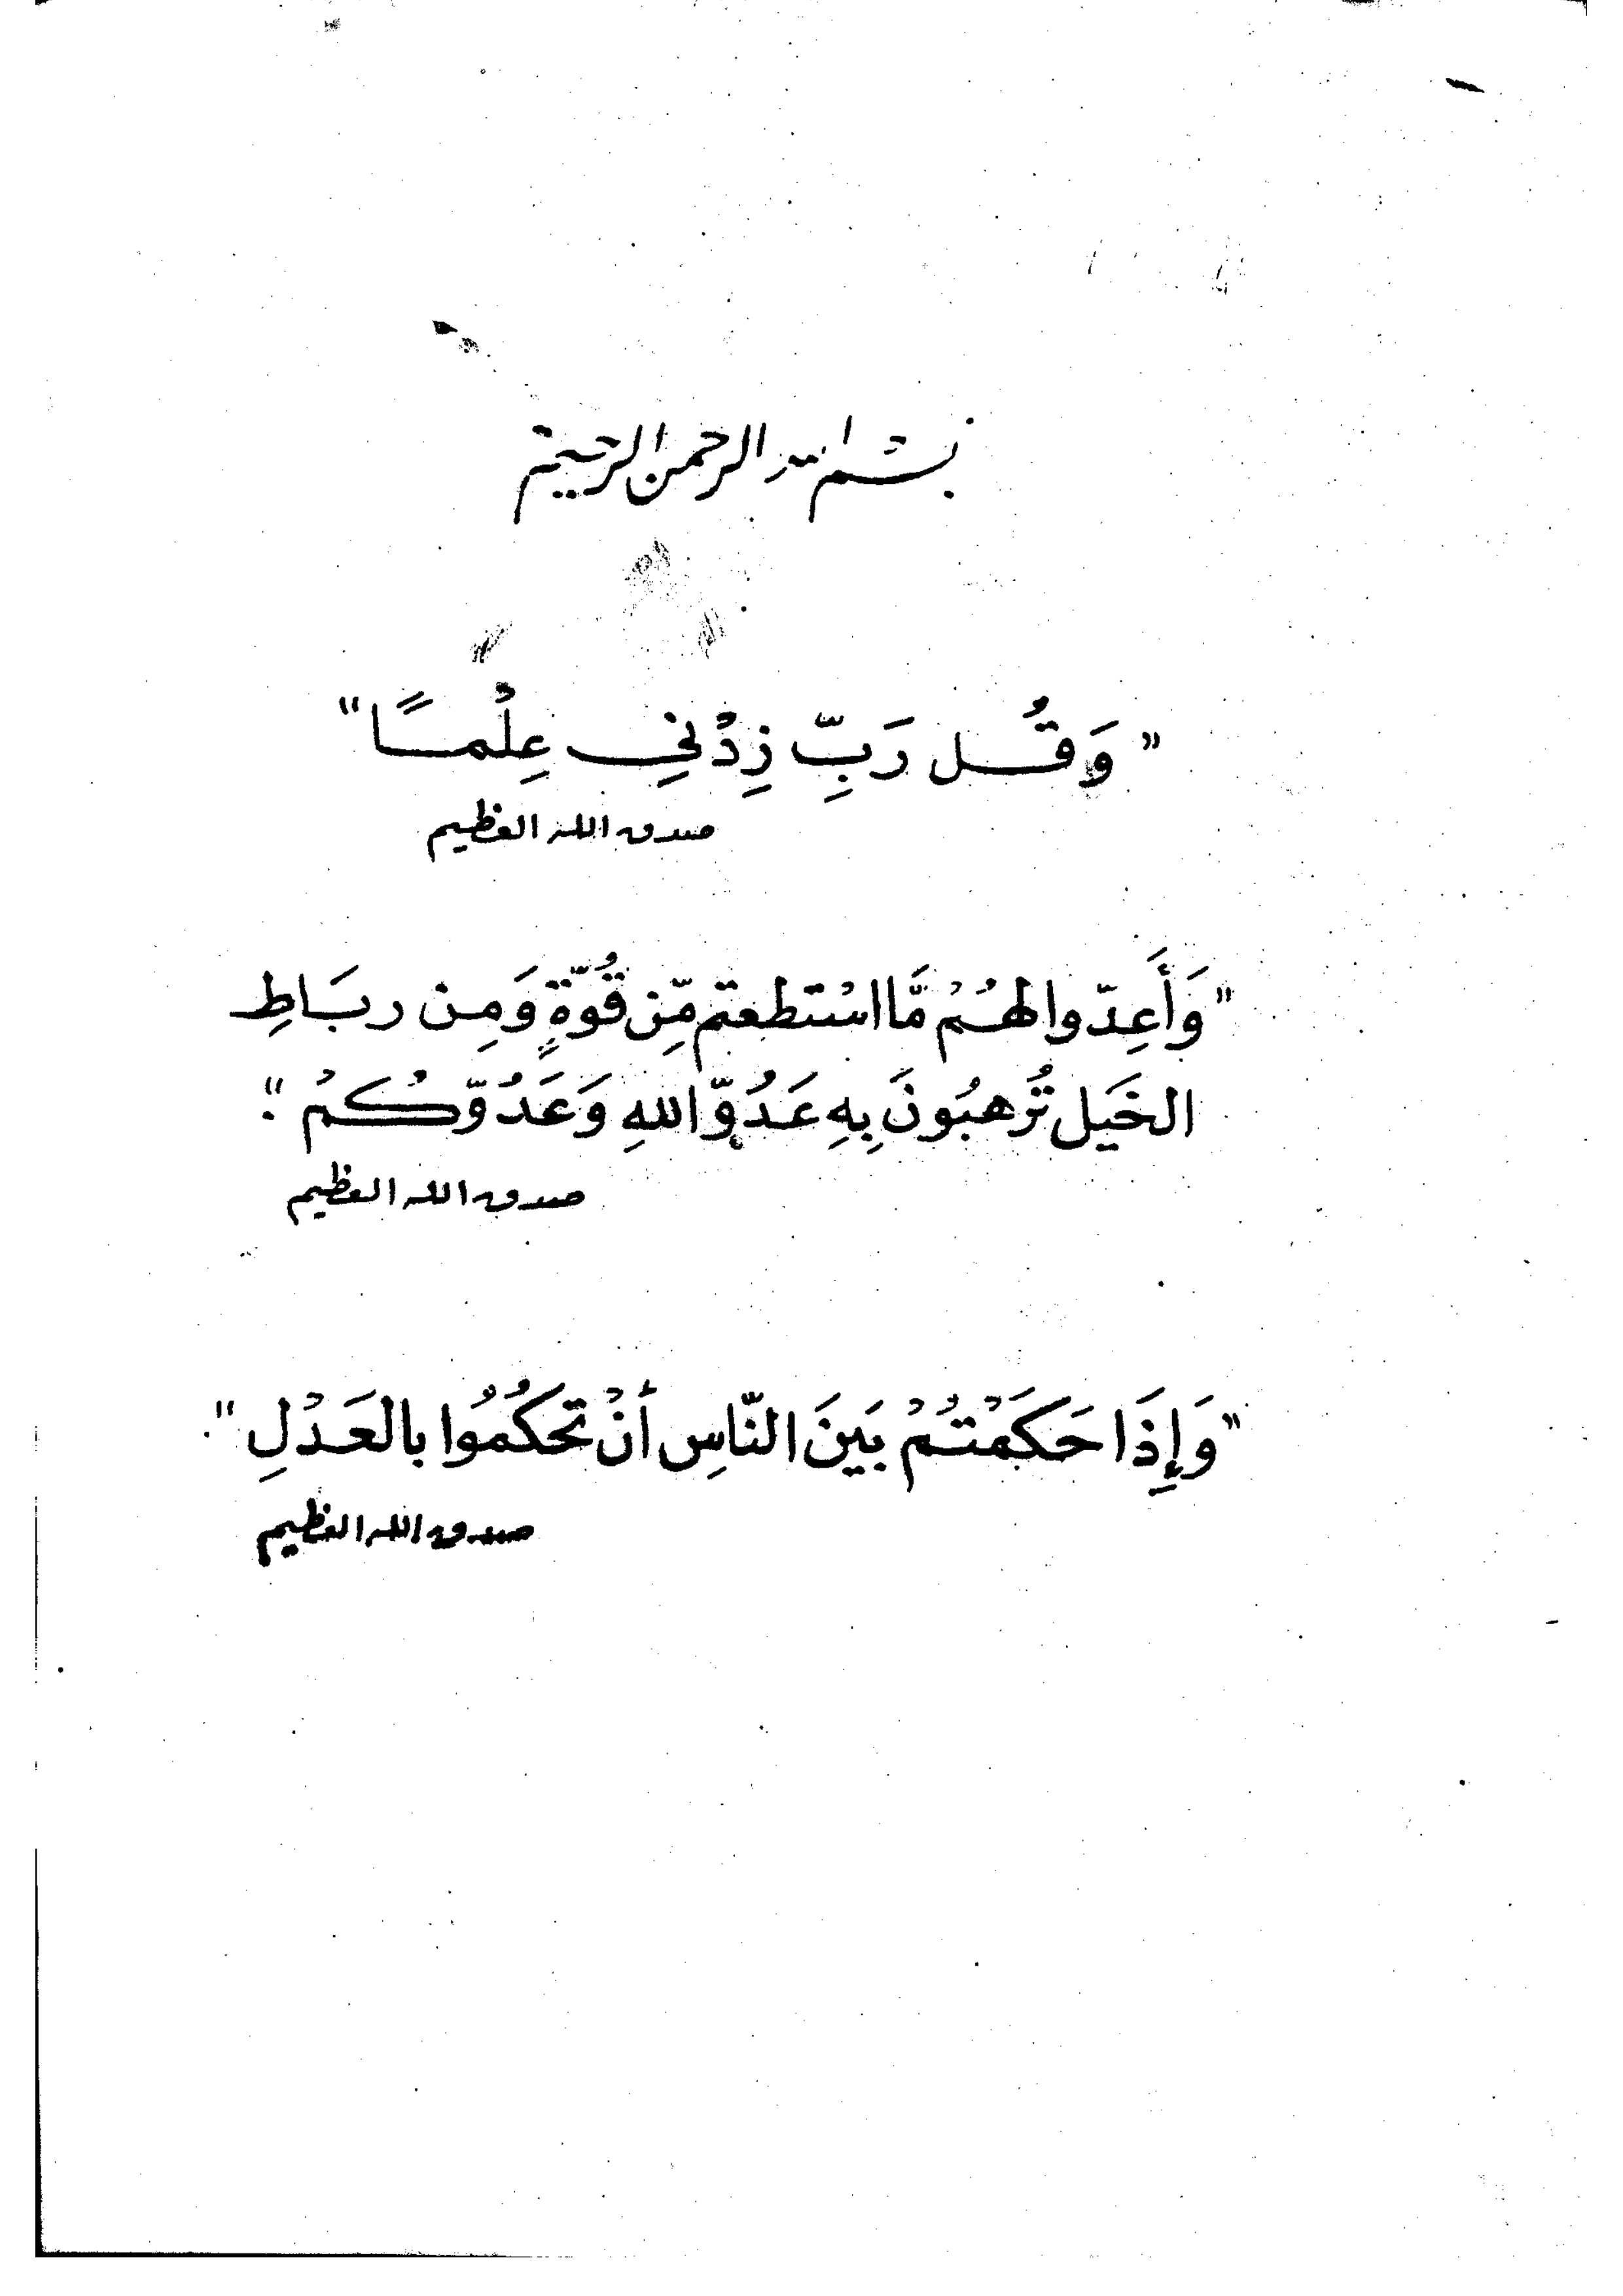 بسم الله الرحمن الرحيم
"وَقُل رَبِّ زِدْنِي عِلْمًا"
صدق الله العظيم
"وَأَعِدّوا لهُمْ مَّا اسْتطعتم مِّن قُوّةٍ وَمِن ربَاطِ
الخَيل تُرهبُونَ بِهِ عَدُوّ اللهِ وَعَدُوّكُمْ".
صدق الله العظيم
"وَإِذَا حَكَمْتُمْ بَينَ النّاسِ أنْ تحكُمُوا بالعَدْلِ".
صدق الله العظيم